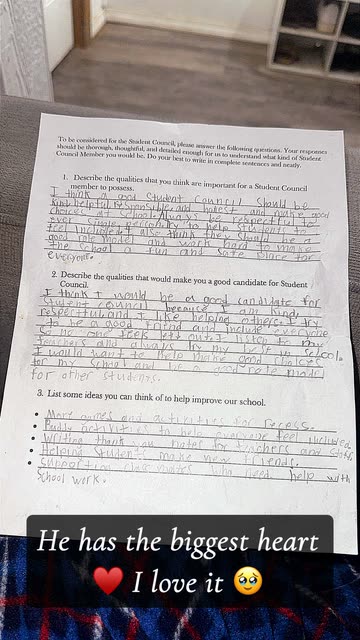 To be considered for the Student Council, please answer the following questions. Your responses
should be thorough, thoughtful, and detailed enough for us to understand what kind of Student
Council Member you would be. Do your best to write in complete sentences and neatly.
1. Describe the qualities that you think are important for a Student Council
member to possess.
I think a good Student Council should be
kind, helpful, responsible, and honest and make good
choices at School. Always be respectful to
every single person try to help Students to
feel included. I also think they should be a
good role model and work hard to make
the School a fun and safe place for
everyone.
2. Describe the qualities that would make you a good candidate for Student
Council.
I think I would be a good candidate for
Student council because I am kind,
respectful and I like helping others. I try
to be a good friend and include everyone
so no one feels left out. I listen to my
teachers and always try my best in School.
I would want to help make good choices
for my school and be a good role model
for other students.
3. List some ideas you can think of to help improve our school.
• More games and activities for recess.
• Buddy activities to help everyone feel included
• Writing thank you notes for teachers and staff
• Helping Students make new friends.
• Supporting classmates who need help with
School work.
He has the biggest heart
❤️ I love it 🥹